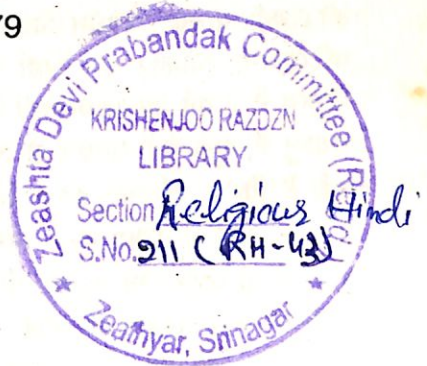 79
Zeashta Devi Prabandak Committee (Regd.)
KRISHENJOO RAZDZN
LIBRARY
Section Religious Hindi
S.No. 211 (RH-43)
Zeathyar, Srinagar